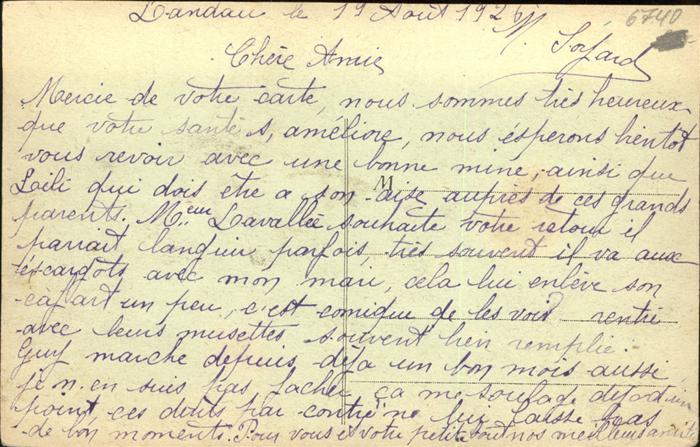 Landau le 19 Août 1926
6740
M. Soyard
Chère Amie
Mercie de votre carte, nous sommes très heureux
que votre santé s, améliore, nous éspérons bientôt
vous revoir avec une bonne mine, ainsi que
Lili qui dois être a son aise auprès de ces grands
parents. M
Mr Lavallée souhaite votre retour il
parrait languir parfois, très souvent il va aux
escardots avec mon mari, cela lui enlève son
cafart un peu, c'est comique de les voir rentré
avec leurs musettes souvent bien remplie.
Guy marche depuis déja un bon mois aussi
je n. en suis pas fachée ça me soulage
point ces dents par contre ne lui laisse pas
de bon moments. Pour vous et votre petite nos meilleurs